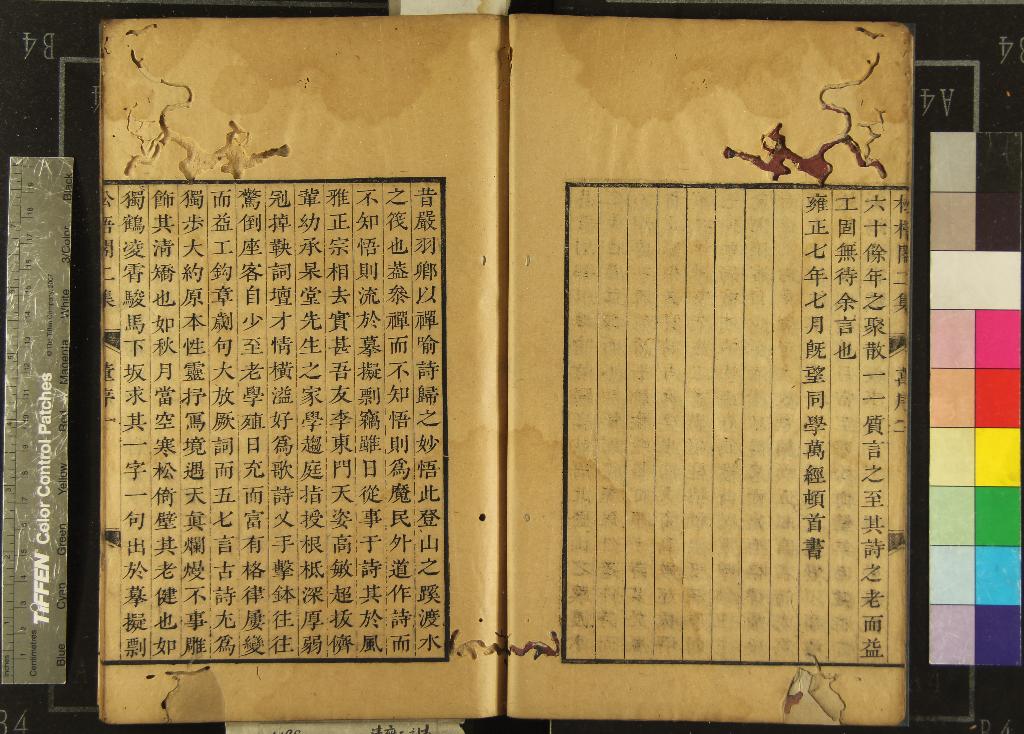 六十餘年之聚散一一質言之至其詩之老而益
工固無待余言也
雍正七年七月旣望同學萬經頓首書
昔嚴羽鄉以禪喻詩歸之妙悟此登山之蹊渡水
之筏也葢叅禪而不知悟則爲魔民外道作詩而
不知悟則流於摹擬剽竊雖日從事于詩其於風
雅正宗相去實甚吾友李東門天姿高敏超拔儕
輩幼承杲堂先生之家學趨庭指授根柢深厚弱
冠掉鞅詞壇才情橫溢好爲歌詩叉手擊鉢往往
驚倒座客自少至老學殖日充而富有格律屢變
而益工鈎章劌句大放厥詞而五七言古詩尤爲
獨歩大約原本性靈抒寫境遇天眞爛熳不事雕
飾其淸矯也如秋月當空寒松倚壁其老健也如
獨鶴凌霄駿馬下坂求其一字一句出於摹擬剽
B4
A4
TIFFEN Color Control Patches
© The Tiffen Company, 2007
Centimetres
Inches
Blue
Cyan
Green
Yellow
Red
Magenta
White
3/Color
Black